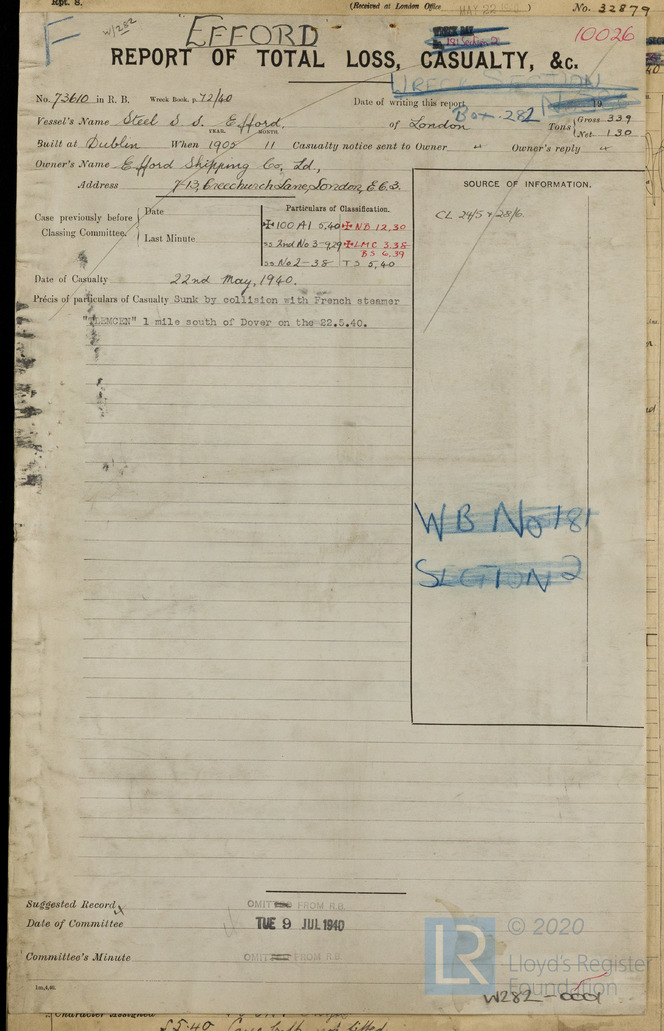 Rpt. 8.
(Received at London Office MAY 22 )
No. 32879
W/282
EFFORD
10026
F
REPORT OF TOTAL LOSS, CASUALTY, &c.
WRECK SECTION
No. 73610 in R. B. Wreck Book, p. 72/40 Date of writing this report 19
Box 282
Vessel's Name Steel S. S. Efford. of London Tons Gross 339
Net 130
YEAR. MONTH.
Built at Dublin When 1905 11 Casualty notice sent to Owner " Owner's reply "
Owner's Name Efford Shipping Co, Ld.,
Address 7-13, Creechurch Lane, London, E.C.3.
SOURCE OF INFORMATION.
CL 24/5 & 28/6
Case previously before Classing Committee.
Date
Last Minute
Particulars of Classification.
✠100A1 5,40 ✠NB 12,30
ss 2nd No 3-9,29 ✠LMC 3.38
BS 6.39
ss No 2-38 TS 5,40
Date of Casualty 22nd May, 1940.
Précis of particulars of Casualty Sunk by collision with French steamer
"TLEMCEN" 1 mile south of Dover on the 22.5.40.
WB No 181
SECTION 2
Suggested Record OMITTED FROM R.B.
Date of Committee TUE 9 JUL 1940
Committee's Minute OMITTED FROM R.B.
LR
© 2020
Lloyd's Register
Foundation
W282-0001
Character Assigned